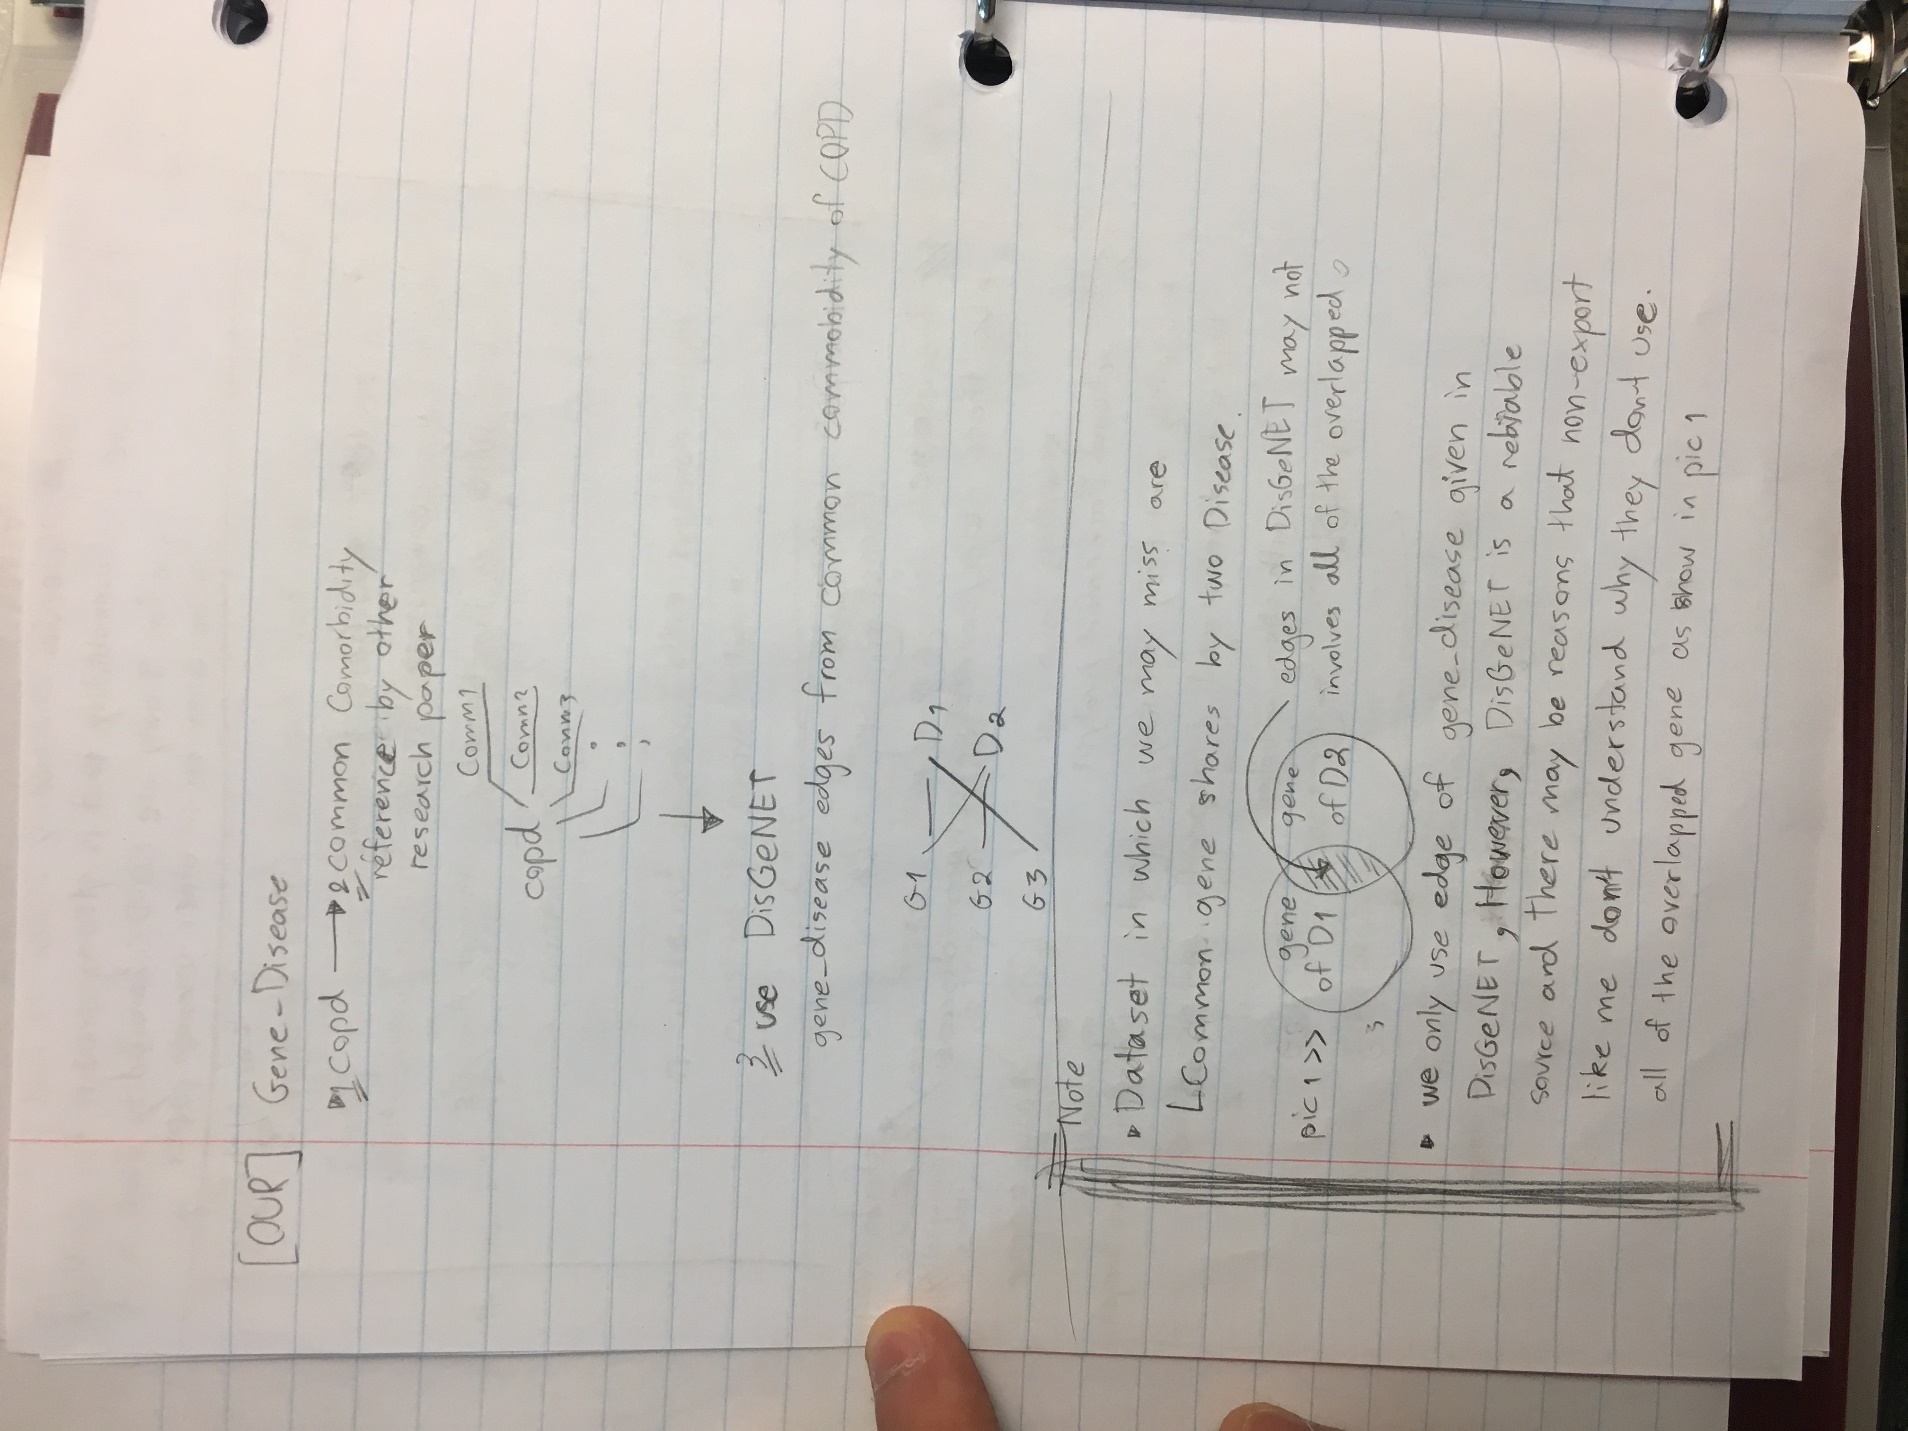 [OUR] Gene-Disease
1 copd → 2 common Comorbidity
reference by other
research paper
Comm1
copd Comm2
Comm3
3 use DisGeNET
gene-disease edges from common commobidity of COPD
G1 D1
G2 D2
G3
Note
Dataset in which we may miss are
Common gene shares by two Disease.
edges in DisGeNET may not
involves all of the overlapped
pic 1 >> gene of D1 gene of D2
we only use edge of gene-disease given in
DisGeNET, However, DisGeNET is a
source and there may be reasons that non-export
like me don't understand why they don't use.
all of the overlapped gene as show in pic 1